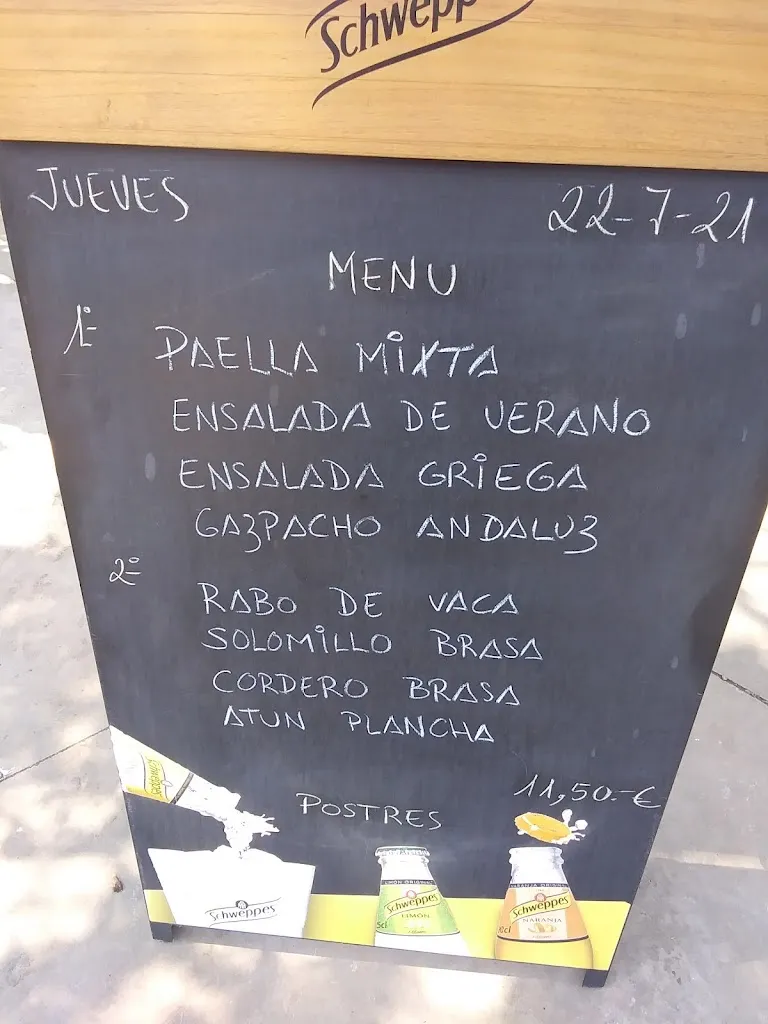 Schwepp
JUEVES 22-7-21
MENU
1º PAELLA MIXTA
ENSALADA DE VERANO
ENSALADA GRIEGA
GAZPACHO ANDALUZ
2º RABO DE VACA
SOLOMILLO BRASA
CORDERO BRASA
ATUN PLANCHA
11,50.-€
POSTRES
Schweppes
Schweppes
Schweppes
LIMÓN
Schweppes
NARANJA